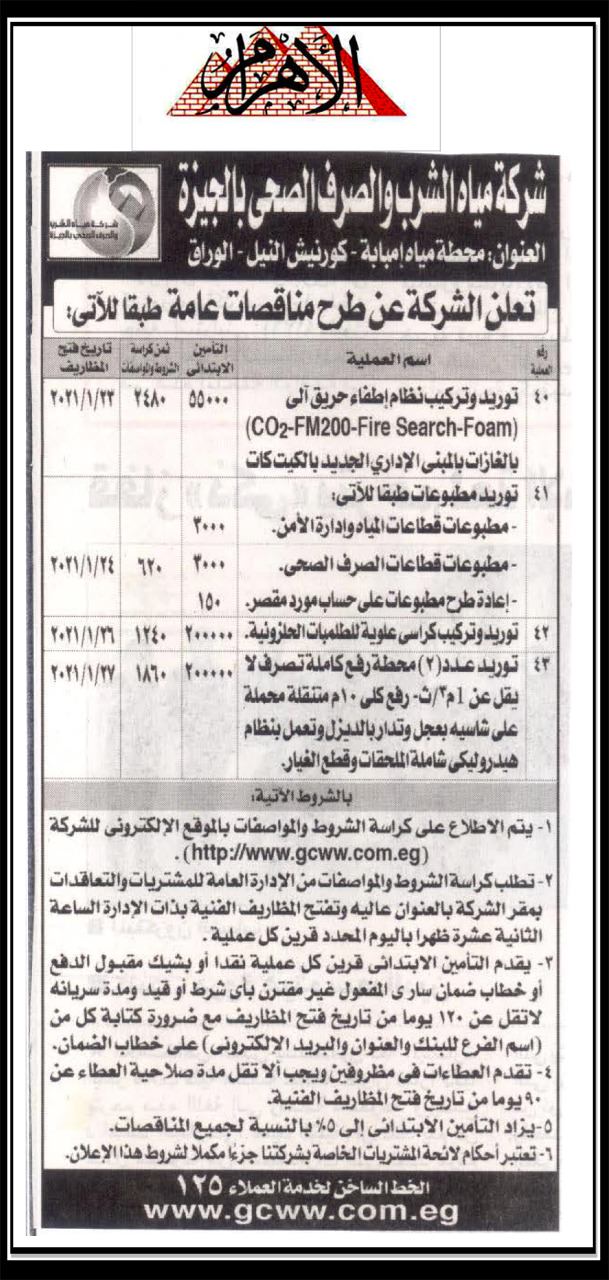 الأهرام
شركة مياه الشرب والصرف الصحى بالجيزة
العنوان: محطة مياه إمبابة - كورنيش النيل - الوراق
شركة مياه الشرب
والصرف الصحي بالجيزة
تعلن الشركة عن طرح مناقصات عامة طبقا للآتى:
رقم العملية اسم العملية التأمين الابتدائى ثمن كراسة الشروط والمواصفات تاريخ فتح المظاريف
٤٠ توريد وتركيب نظام إطفاء حريق آلى ٥٥٠٠٠ ٢٤٨٠ ٢٠٢١/١/٢٣
(CO2-FM200-Fire Search-Foam)
بالغازات بالمبنى الإداري الجديد بالكيت كات
٤١ توريد مطبوعات طبقا للآتى:
- مطبوعات قطاعات المياه وإدارة الأمن. ٣٠٠٠
- مطبوعات قطاعات الصرف الصحى. ٣٠٠٠ ٦٢٠ ٢٠٢١/١/٢٤
- إعادة طرح مطبوعات على حساب مورد مقصر. ١٥٠
٤٢ توريد وتركيب كراسى علوية للطلمبات الحلزونية. ٢٠٠٠٠٠ ١٢٤٠ ٢٠٢١/١/٢٦
٤٣ توريد عدد (٢) محطة رفع كاملة تصرف لا ٢٠٠٠٠٠ ١٨٦٠ ٢٠٢١/١/٢٧
يقل عن 1م٣/ث- رفع كلى ١٠م متنقلة محملة
على شاسيه بعجل وتدار بالديزل وتعمل بنظام
هيدروليكى شاملة الملحقات وقطع الغيار.
بالشروط الآتية:
١- يتم الاطلاع على كراسة الشروط والمواصفات بالموقع الإلكترونى للشركة
(http://www.gcww.com.eg).
٢- تطلب كراسة الشروط والمواصفات من الإدارة العامة للمشتريات والتعاقدات
بمقر الشركة بالعنوان عاليه وتفتح المظاريف الفنية بذات الإدارة الساعة
الثانية عشرة ظهرا باليوم المحدد قرين كل عملية.
٣- يقدم التأمين الابتدائى قرين كل عملية نقدا أو بشيك مقبول الدفع
أو خطاب ضمان سارى المفعول غير مقترن بأى شرط أو قيد ومدة سريانه
لاتقل عن ١٢٠ يوما من تاريخ فتح المظاريف مع ضرورة كتابة كل من
(اسم الفرع للبنك والعنوان والبريد الإلكترونى) على خطاب الضمان.
٤- تقدم العطاءات فى مظروفين ويجب ألا تقل مدة صلاحية العطاء عن
٩٠ يوما من تاريخ فتح المظاريف الفنية.
٥- يزاد التأمين الابتدائى إلى ٥% بالنسبة لجميع المناقصات.
٦- تعتبر أحكام لائحة المشتريات الخاصة بشركتنا جزءًا مكملا لشروط هذا الإعلان.
الخط الساخن لخدمة العملاء ١٢٥
www.gcww.com.eg